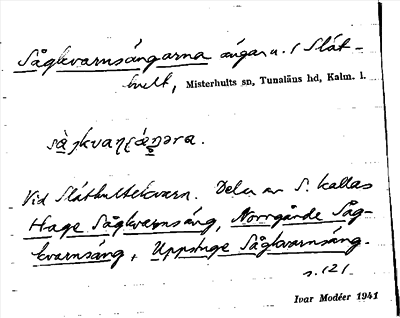 Sågkvarnsängarna ängar u. / Slät-
hult, Misterhults sn, Tunaläns hd, Kalm. l.
Vid Släthultekvarn. Delar av S. kallas
Hage Sågkvarnsäng, Norrgårde Såg-
kvarnsäng, Uppstuge Sågkvarnsäng.
s. 121.
Ivar Modéer 1941